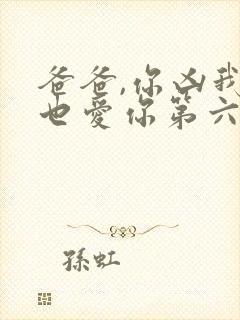 爸爸,你凶我
也爱你第六
孫虹